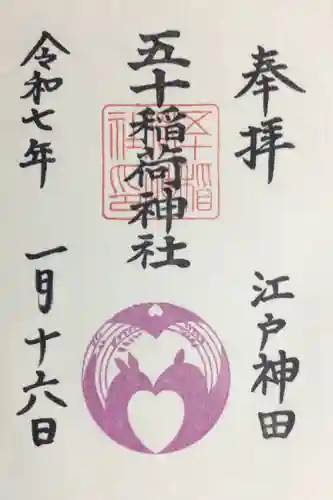 奉拝
江戸神田
五十稲荷神社
令和七年
一月十六日